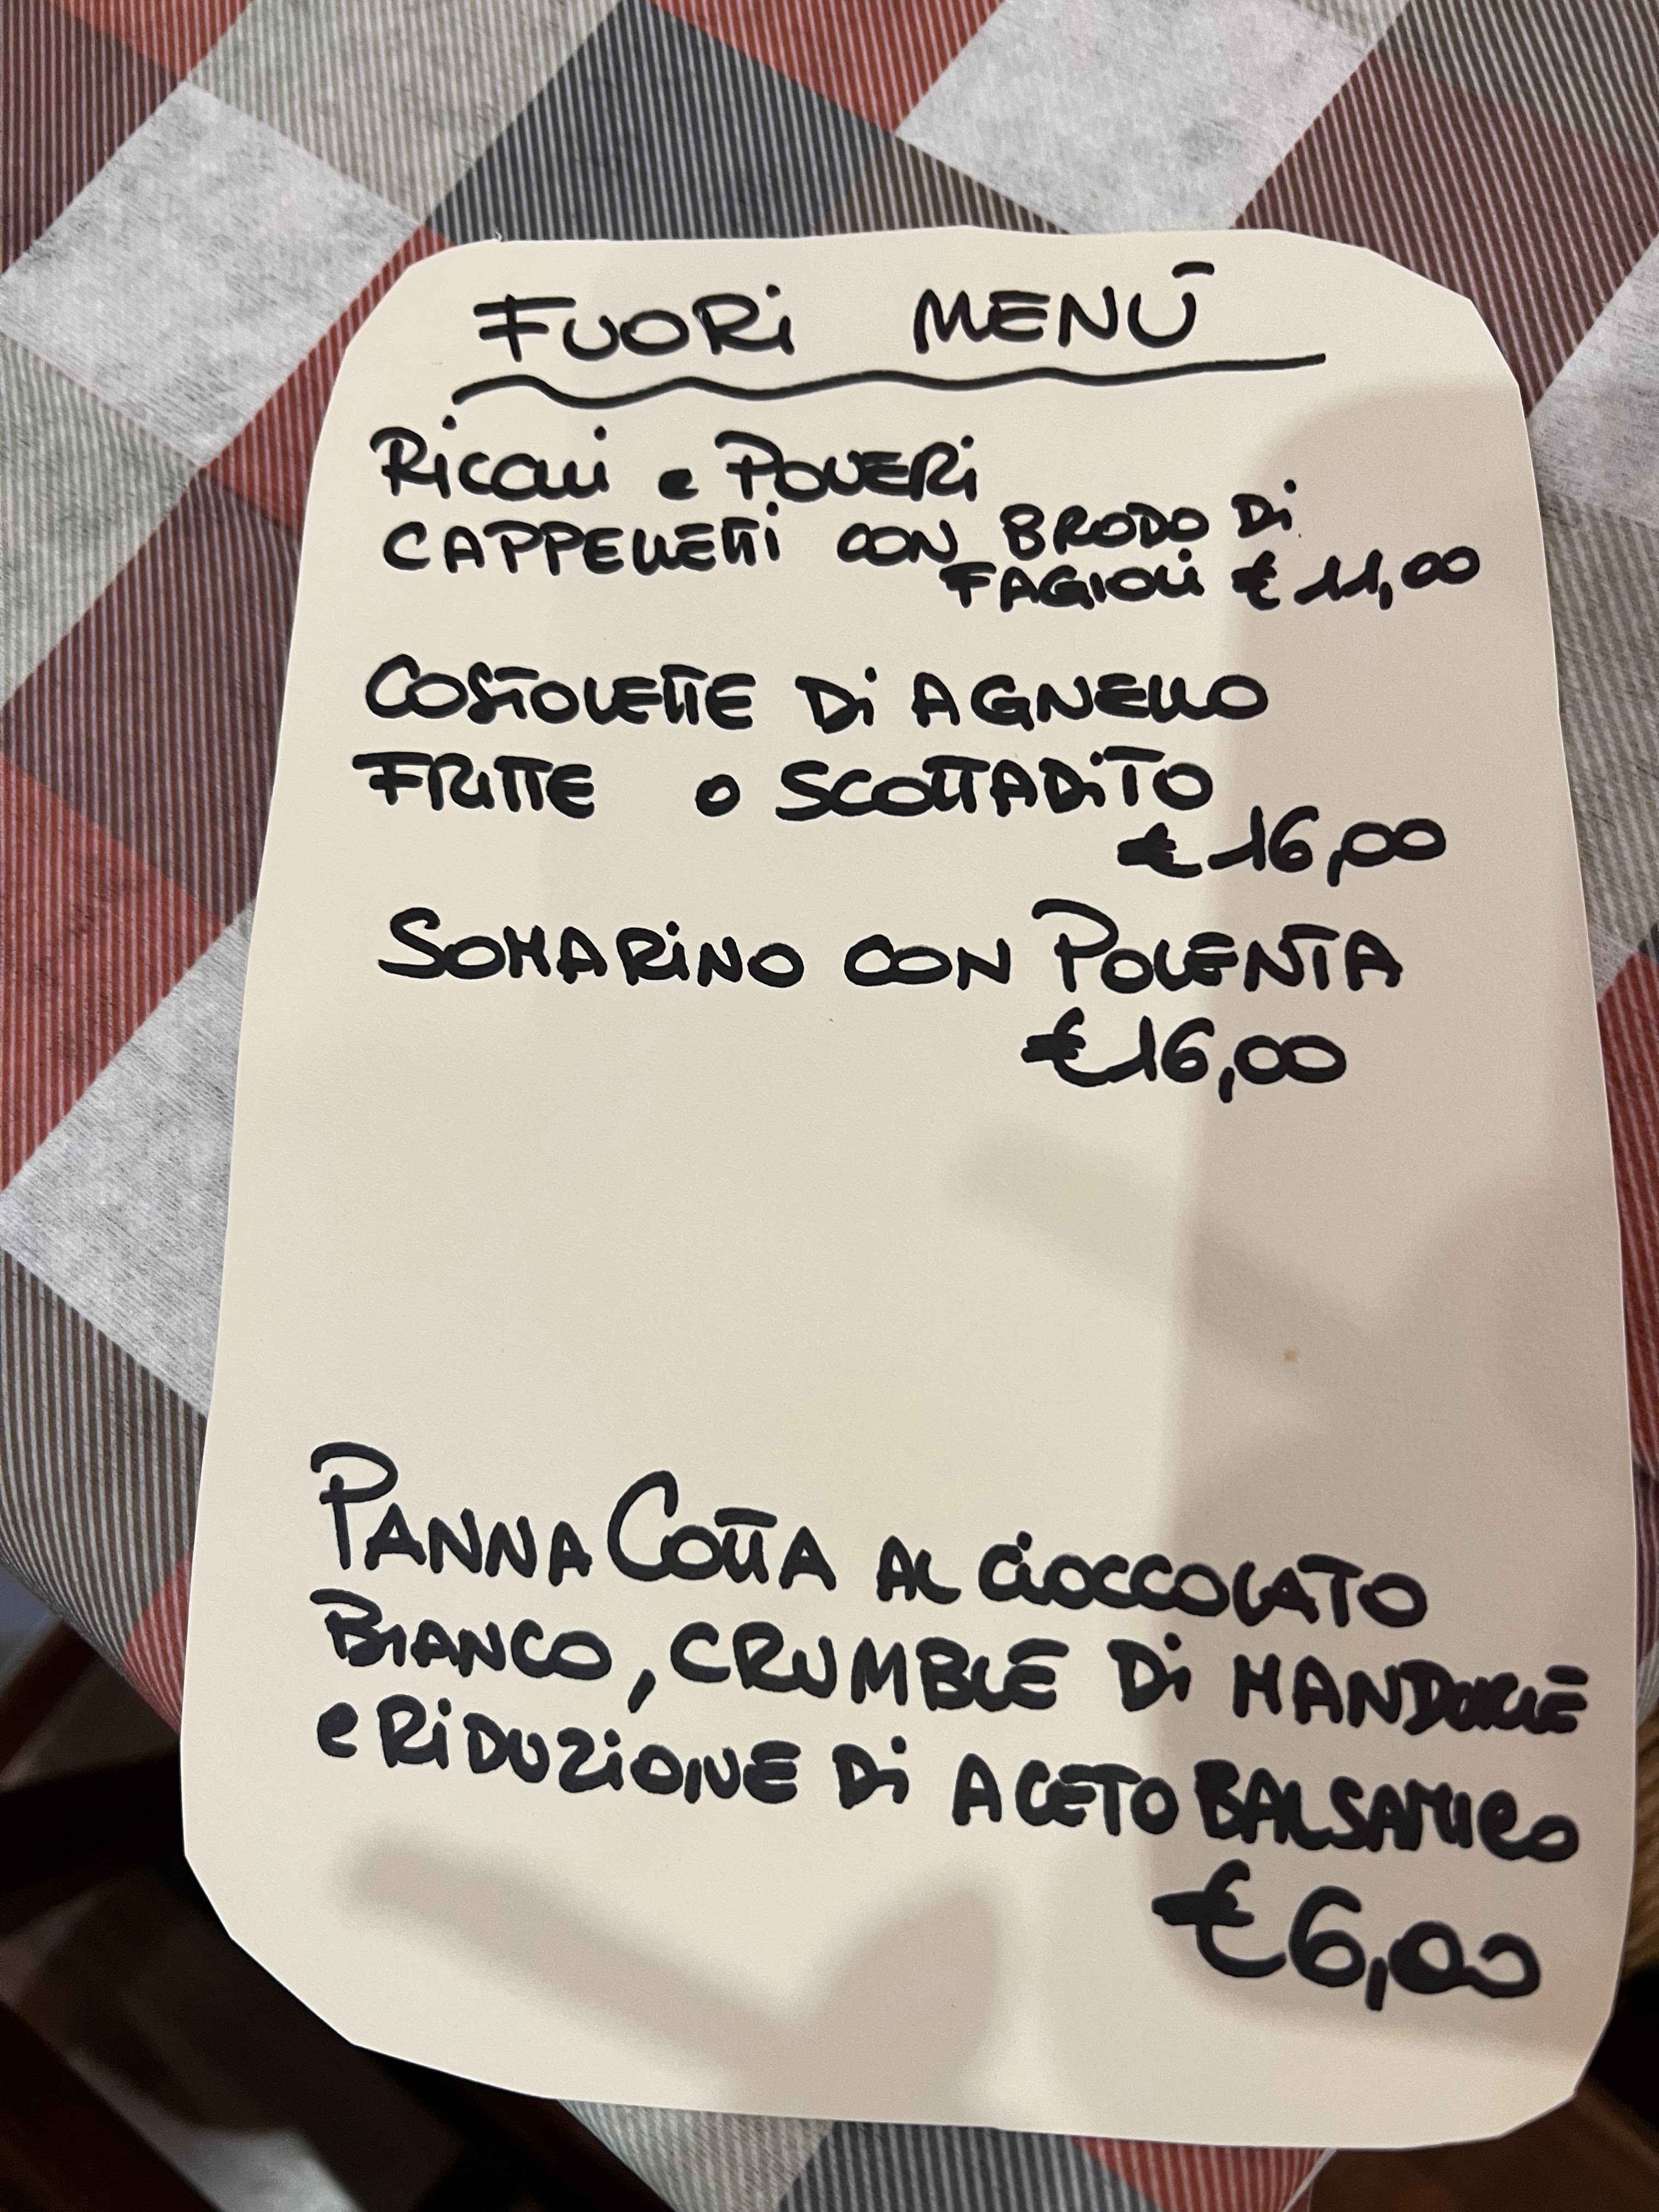 FUORi MENÙ
Ricchi e POVERi
CAPPELLETTi CON BRODO Di
FAGIOLI € 11,00
COSTOLETTE Di AGNELLO
FRITTE o SCOTTADiTO
€ 16,00
SOMARiNO CON POLENTA
€16,00
PANNA COTTA AL CiOCCOLATO
BIANCO, CRUMBLE Di MANDORLE
e RiDUZiONE Di ACETO BALSAMICO
€6,00